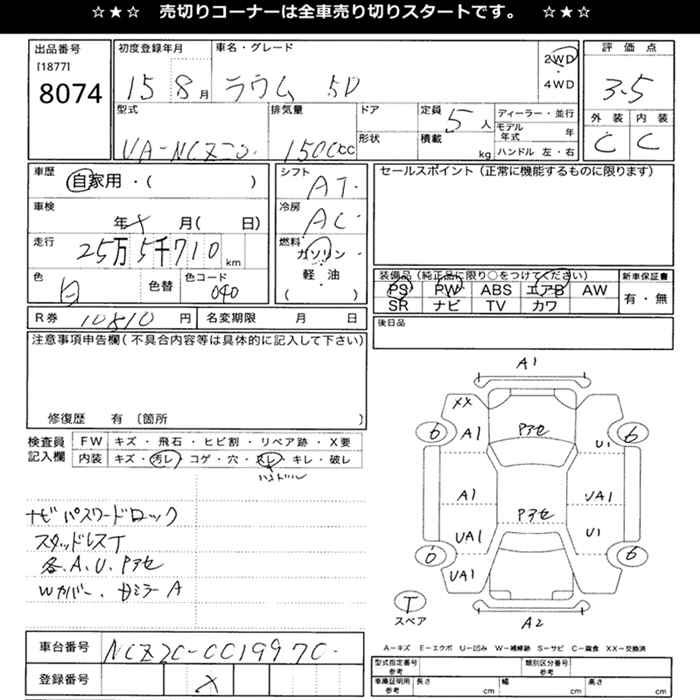 ☆★☆ 売切りコーナーは全車売り切りスタートです。 ☆★☆
出品番号
[1877]
8074
初度登録年月
15 8月
車名・グレード
ラウム 5D
2WD
4WD
評価点
3.5
外装 内装
C C
型式
UA-NCZ20
排気量
1500cc
ドア
形状
定員
5人
積載
kg
ディーラー・並行
モデル年式 年
ハンドル 左・右
車歴
自家用・( )
車検
年 x 月( 日)
走行
25万5千710km
色
白
色替
色コード
040
シフト
AT
冷房
AC
燃料
ガソリン
軽・油
( )
セールスポイント(正常に機能するものに限ります)
装備品(純正品に限り○をつけてください)
PS PW ABS エアB AW
SR ナビ TV カワ
新車保証書
有・無
R券 10810円
名変期限 月 日
後日品
注意事項申告欄(不具合内容等は具体的に記入して下さい)
修復歴 有 〔箇所 〕
検査員記入欄
FW キズ・飛石・ヒビ割・リペア跡・X要
内装 キズ・汚レ・コゲ・穴・スレ・キレ・破レ
ハンドル
ナビパスワードロック
スタッドレスT
各.A.U.Pアセ
Wカバー.ミラーA
A1
XX
A1
Pアセ
U1
6
6
A1
UA1
UA1
Pアセ
UA1
U1
6
6
T
スペア
A2
A-キズ E-エクボ U-凹み W-補修跡 S-サビ C-腐食 XX-交換済
車台番号
NCZ20-0019970
登録番号
x
型式指定番号
参考
類別区分番号
参考
車庫証明用
参考
長さ cm
幅 cm
高さ cm